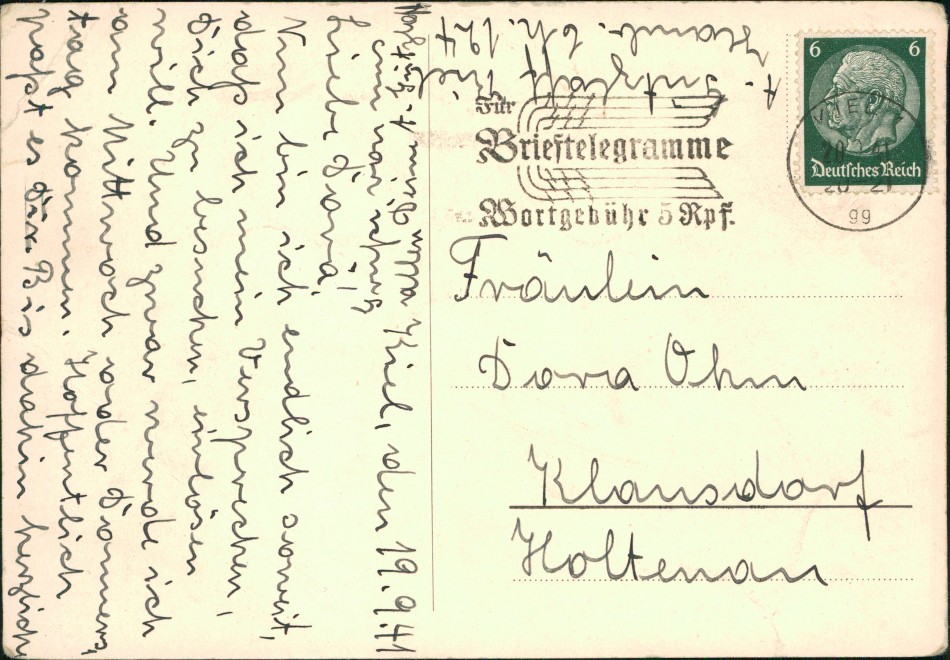 Kiel, den 19.9.41
Liebe Dora!
Nun bin ich endlich soweit,
daß ich mein Versprechen,
Dich zu besuchen, einlösen
will. Und zwar werde ich
am Mittwoch oder Donners,
tag kommen. Hoffentlich
paßt es Dir. Bis dahin herzlich
A. Kiel
Hamb. Ch. 124
Für
Brieftelegramme
Wortgebühr 5 Rpf.
6 6
Deutsches Reich
20-21
gg
Fräulein
Dora Ohm
Klausdorf
Holtenau